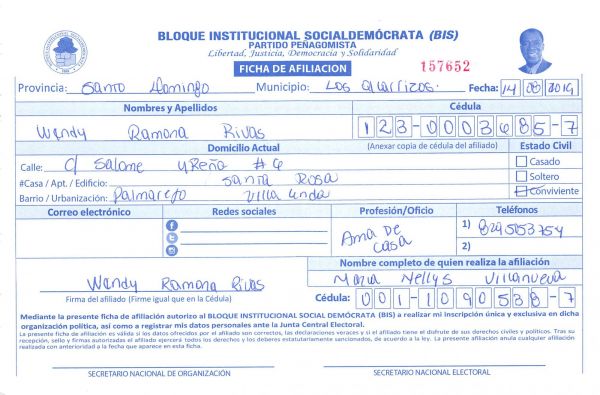 BLOQUE INSTITUCIONAL SOCIALDEMÓCRATA (BIS)
PARTIDO PEÑAGOMISTA
Libertad, Justicia, Democracia y Solidaridad
FICHA DE AFILIACION 157652
Provincia: Santo Domingo Municipio: Los Alcarrizos. Fecha: 14 08 2019
Nombres y Apellidos Cédula
Wendy Ramona Rivas 123-0003685-7
Domicilio Actual (Anexar copia de cédula del afiliado) Estado Civil
Calle: C/ Salome Ureña #6 Casado
#Casa / Apt. / Edificio: Santa Rosa Soltero
Barrio / Urbanización: Palmarejo Villa Linda Conviviente
Correo electrónico Redes sociales Profesión/Oficio Teléfonos
Ama De Casa 1) 8295053754
2)
Nombre completo de quien realiza la afiliación
Wendy Ramona Rivas Maria Nellys Villanueva
Firma del afiliado (Firme igual que en la Cédula) Cédula: 001-1090538-7
Mediante la presente ficha de afiliación autorizo al BLOQUE INSTITUCIONAL SOCIAL DEMÓCRATA (BIS) a realizar mi inscripción única y exclusiva en dicha
organización política, así como a registrar mis datos personales ante la Junta Central Electoral.
La presente ficha de afiliación es válida si los datos ofrecidos por el afiliado son correctos, las declaraciones veraces y si el afiliado tiene el disfrute de sus derechos civiles y políticos. Tras su
recepción, sello y firmas autorizadas el afiliado ejercerá todos los derechos y los deberes estatutariamente sancionados, de acuerdo a la ley. La presente afiliación anula cualquier afiliación
realizada con anterioridad a la fecha que aparece en esta ficha.
SECRETARIO NACIONAL DE ORGANIZACIÓN SECRETARIO NACIONAL ELECTORAL